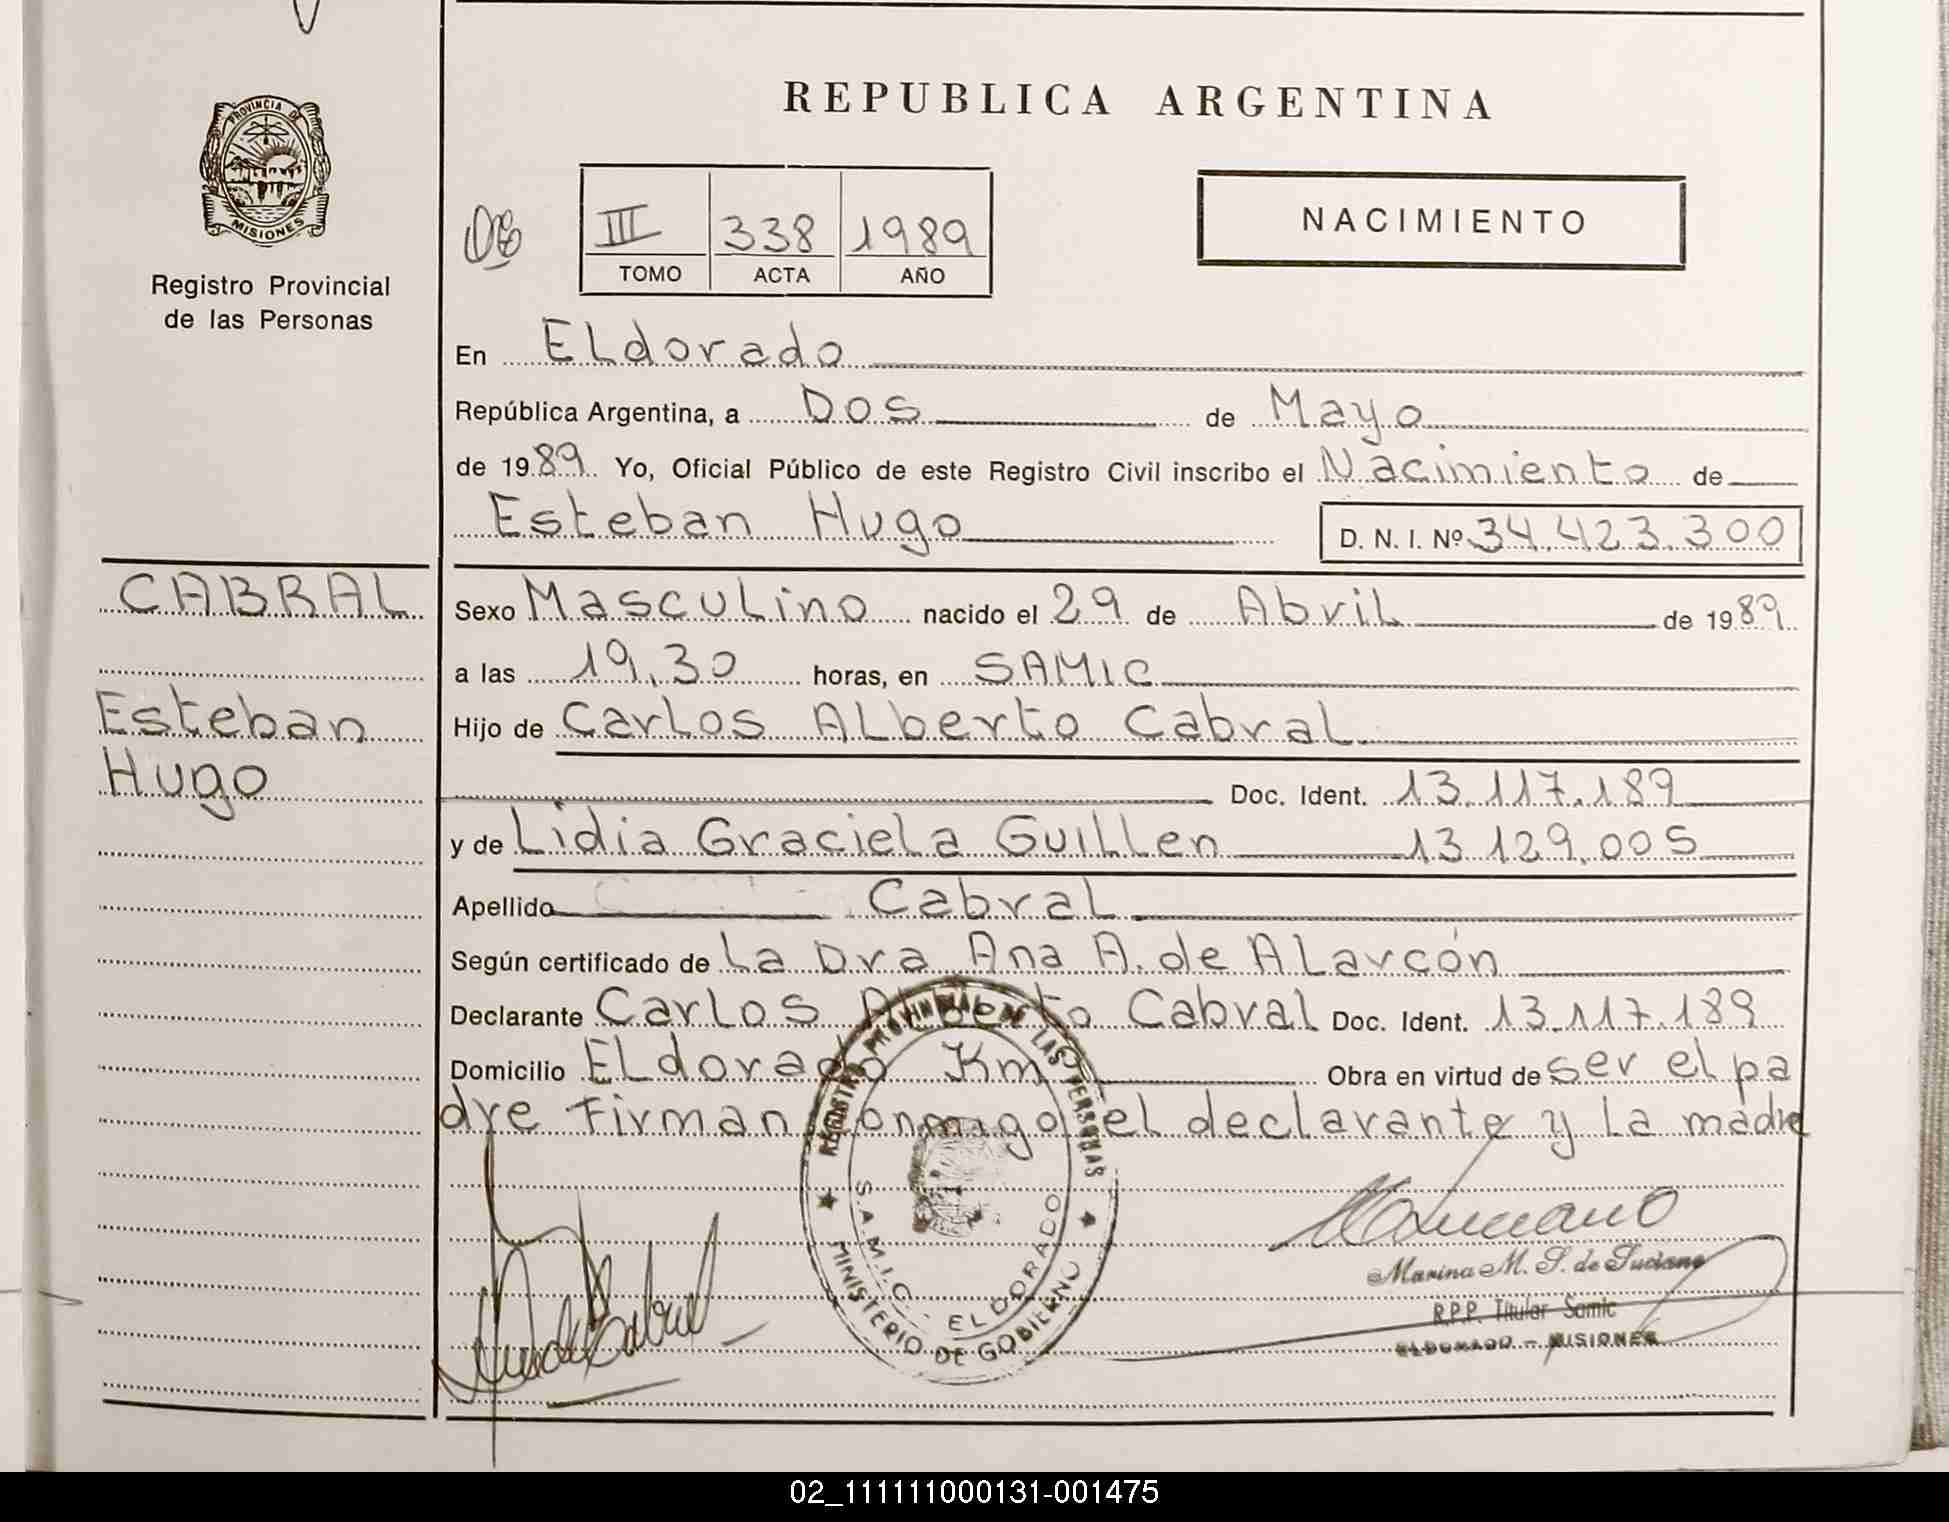 PROVINCIA DE
MISIONES
Registro Provincial
de las Personas
CABRAL
Esteban
Hugo
REPUBLICA ARGENTINA
III 338 1989
TOMO ACTA AÑO
NACIMIENTO
En Eldorado
República Argentina, a Dos de Mayo
de 1989 Yo, Oficial Público de este Registro Civil inscribo el Nacimiento de
Esteban Hugo D. N. I. Nº 34.423.300
Sexo Masculino nacido el 29 de Abril de 1989
a las 19,30 horas, en SAMIC
Hijo de Carlos Alberto Cabral
Doc. Ident. 13.117.189
y de Lidia Graciela Guillen 13 129.005
Apellido Cabral
Según certificado de La Dra Ana A. de Alarcón
Declarante Carlos Alberto Cabral Doc. Ident. 13.117.189
Domicilio Eldorado Km Obra en virtud de ser el pa
dre Firman conmigo el declarante y la madre
REGISTRO PROVINCIAL DE LAS PERSONAS
S.A.M.I.C. - ELDORADO
MINISTERIO DE GOBIERNO
Marina M. S. de Luciano
R.P.P. Titular Samic
ELDORADO - MISIONES
02_111111000131-001475